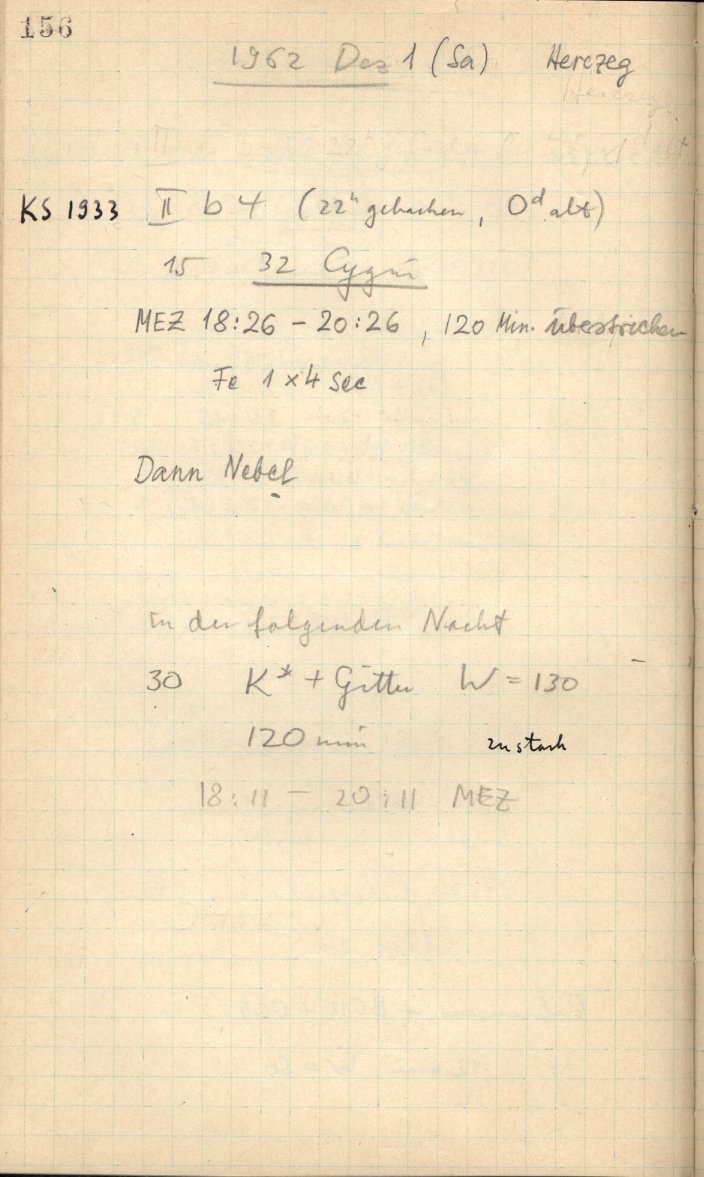 156
1962 Dez 1 (Sa) Herczeg
Herczeg
KS 1933 II b 4 (22ʰ gebacken, 0ᵈ alt)
15 32 Cygni
MEZ 18:26 – 20:26, 120 Min. überstrichen
Fe 1 x 4 sec
Dann Nebel
in der folgenden Nacht
30 K* + Gitter W = 130
120 min zu stark
18:11 – 20:11 MEZ